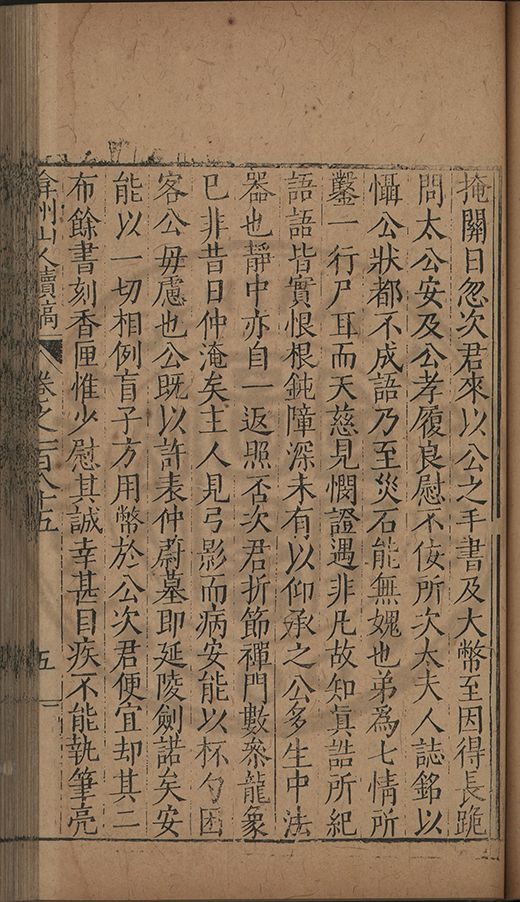 掩關日忽次君來以公之手書及大幣至因得長跪
問太公安及公孝履良慰不佞所次太夫人誌銘以
懾公狀都不成語乃至災石能無媿也弟爲七情所
鑿一行尸耳而天慈見憫證遇非凡故知眞誥所紀
語語皆實恨根鈍障深未有以仰承之公多生中法
器也靜中亦自一返照否次君折節禪門數叅龍象
已非昔日仲淹矣主人見弓影而病安能以杯勺困
客公毋慮也公既以許表仲蔚墓即延陵劍諾矣安
能以一切相例盲子方用幣於公次君便宜却其二
布餘書刻香匣惟少慰其誠幸甚目疾不能執筆亮
弇州山人續稿 卷之一百八十五 五